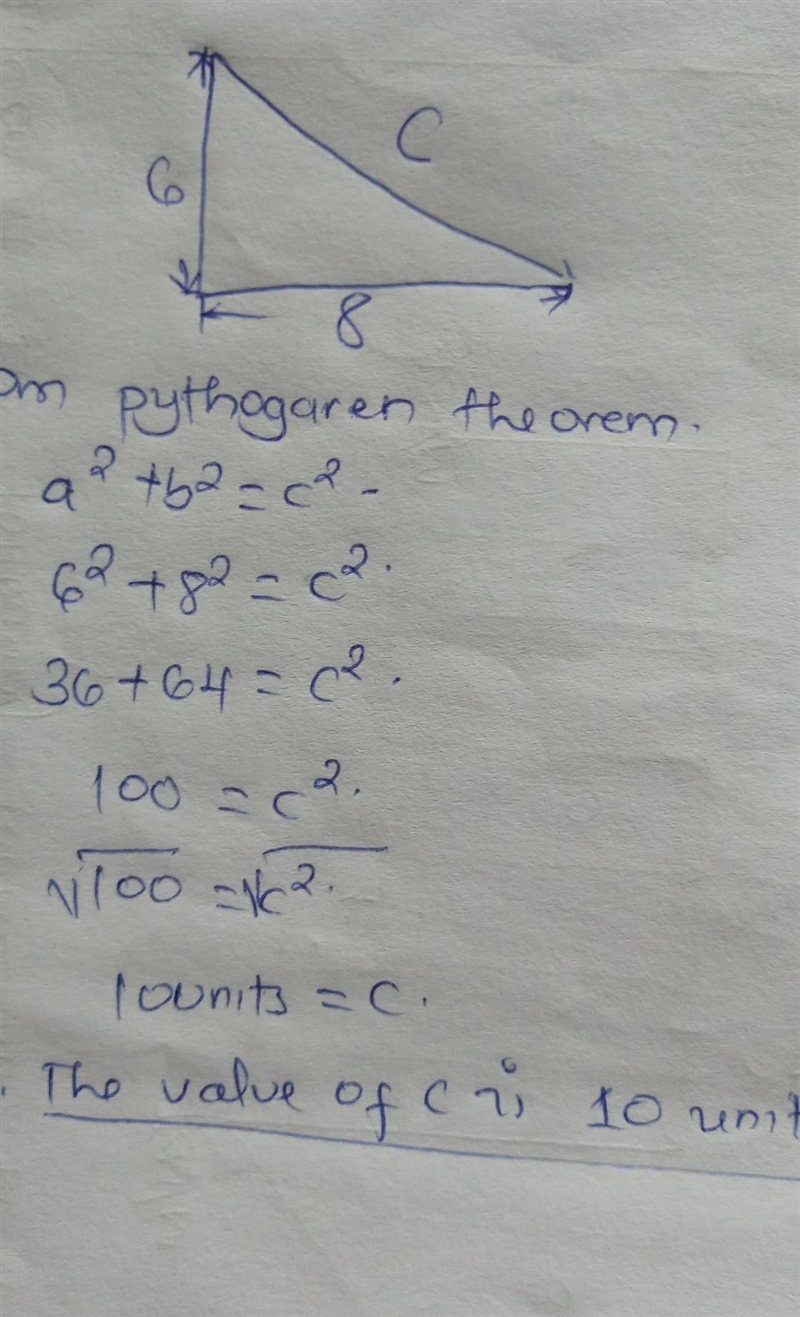 6
C
8
om pythogaren theorem.
a² + b² = c² -
6² + 8² = c².
36 + 64 = c².
100 = c².
√100 = √c².
10units = C.
. The value of c is 10 unit